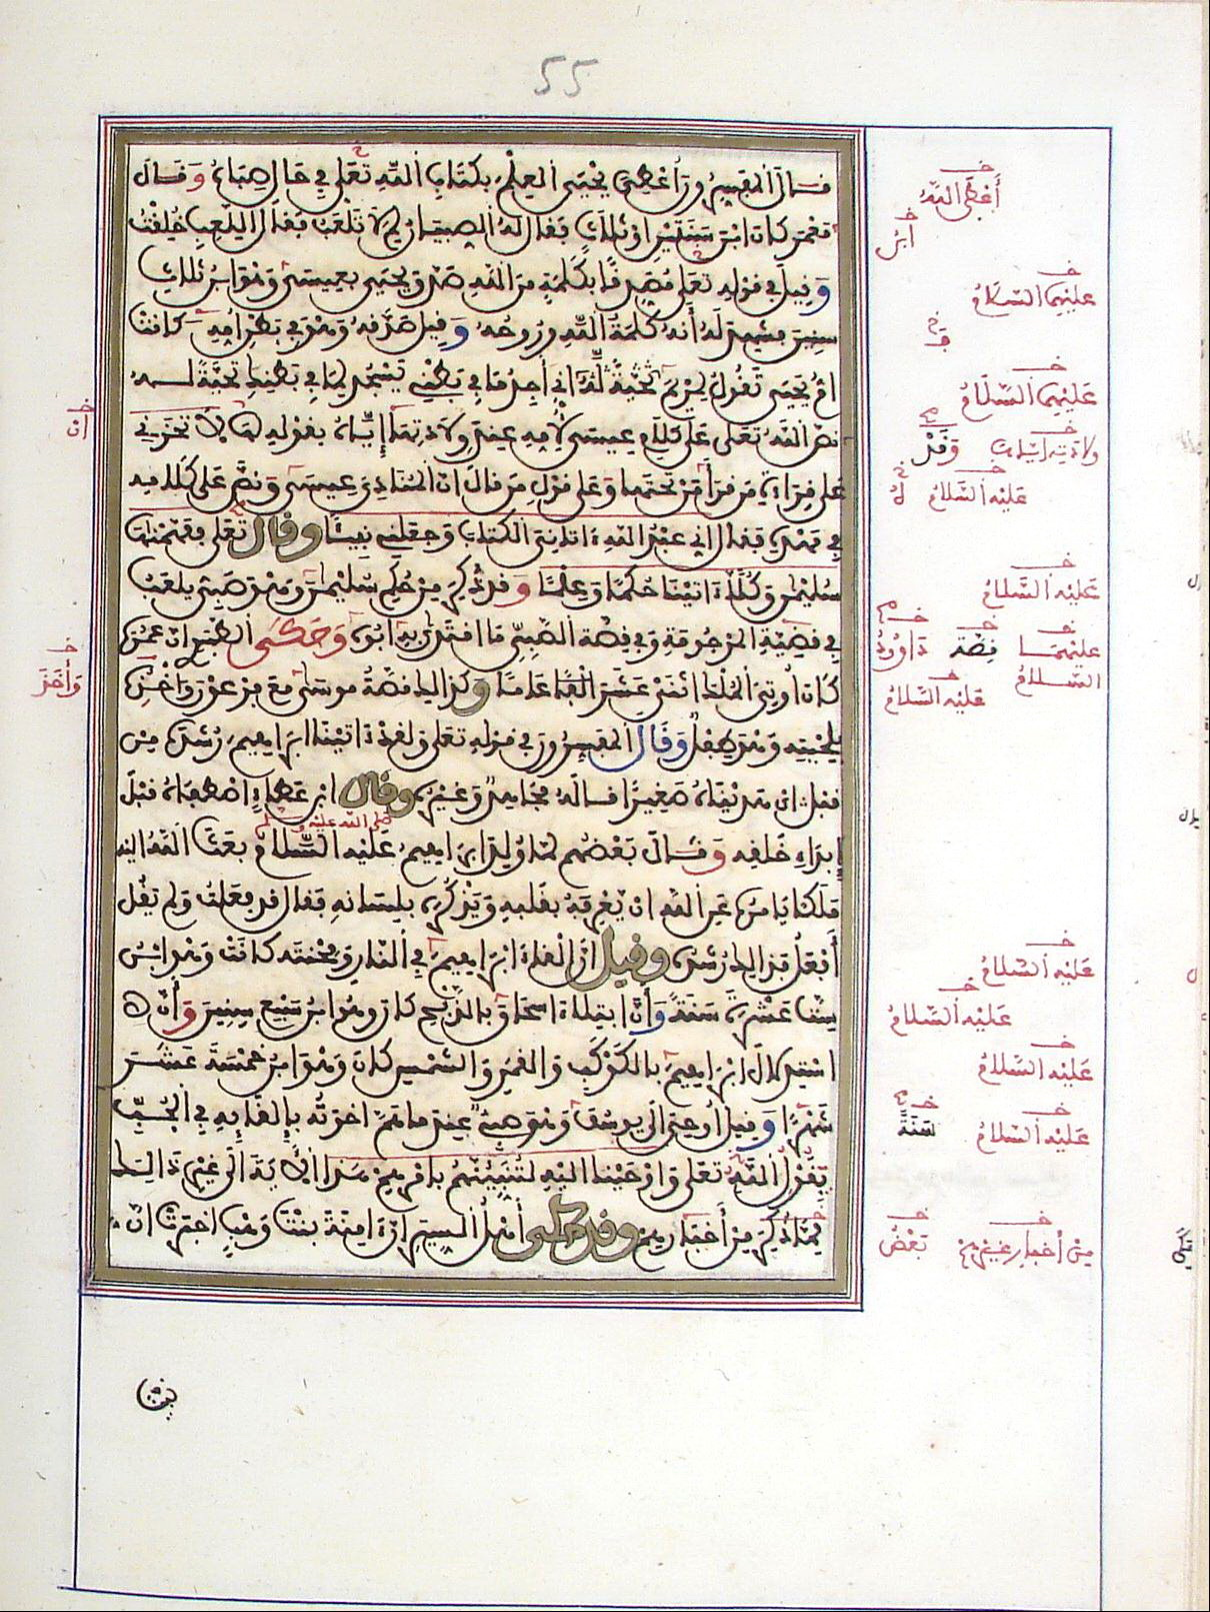 55
قال المفسرون أعطي يحيى العلم بكتاب الله تعلى في حال صباه وقال
معمر كان ابن سنتين أو ثلاث فقال له الصبيان لم لا تلعب فقال أللعب خلقت
وقيل في قوله تعلى مصدقا بكلمة من الله صدق يحيى بعيسى وهو ابن ثلاث
سنين فشهد له أنه كلمة الله وروحه وقيل صدقه وهو في بطن أمه كانت
أم يحيى تقول لمريم إني أجد ما في بطني يسجد لما في بطنك تحية لـه
نص الله تعلى على كلام عيسى لأمه عند ولادتها إياه بقوله لها لا تحزني
على قراءة من قرأ من تحتها وعلى قول من قال ان المنادي عيسى ونص على كلامه
في مهده فقال اني عبد الله ءاتاني الكتاب وجعلني نبيئا وقال تعلى ففهمناها
سليمن وكلا ءاتينا حكما وعلما وقد ذكر من حكم سليمن وهو صبي يلعب
في قضية المرجومة وفي قصة الصبي ما اقتدى به أبوه وحكى الطبري ان عمره
كان أوتي الملك اثنى عشر عاما وكذالك قصة موسى مع فرعون وأخذه
بلحيته وهو طفل وقال المفسرون في قوله تعلى ولقد ءاتينا ابراهيم رشده من
قبل أي هديناه صغيرا قاله مجاهد وغيره وقال ابن عطاء اصطفاه قبل
إبداء خلقه وقال بعضهم لما ولد ابراهيم عليه السلام بعث الله اليه
صلى الله عليه وسلم
ملكا يامره عن الله ان يعرفه بقلبه ويذكره بلسانه فقال قد فعلت ولم يقل
أفعل فذالك رشده وقيل ان إلقاء ابراهيم في النار ومحنته كانت وهو ابن
ست عشرة سنة وأن ابتلاء اسحاق بالذبح كان وهو ابن سبع سنين وأن
استدلال ابراهيم بالكوكب والقمر والشمس كان وهو ابن خمسة عشر
شهرا وقيل أوحي إلى يوسف وهو صبي عند ما هم اخوته بإلقائه في الجب
بقول الله تعلى وأوحينا اليه لتنبئنهم بامرهم هذا الآية الى غير ذالك
مما ذكر من أخبارهم وقد حكى أهل السير ان ءامنة بنت وهب اخبرت ان
أعطى الله
ابن
عليهما السلام
عليهما السلام
وقد
عليه السلام
عليه السلام
عليهما قصة داوود
السلام
عليه السلام
عليه السلام
عليه السلام
عليه السلام
عليه السلام سنة
من أخبار غيرهم بعض
ان
وأخذ